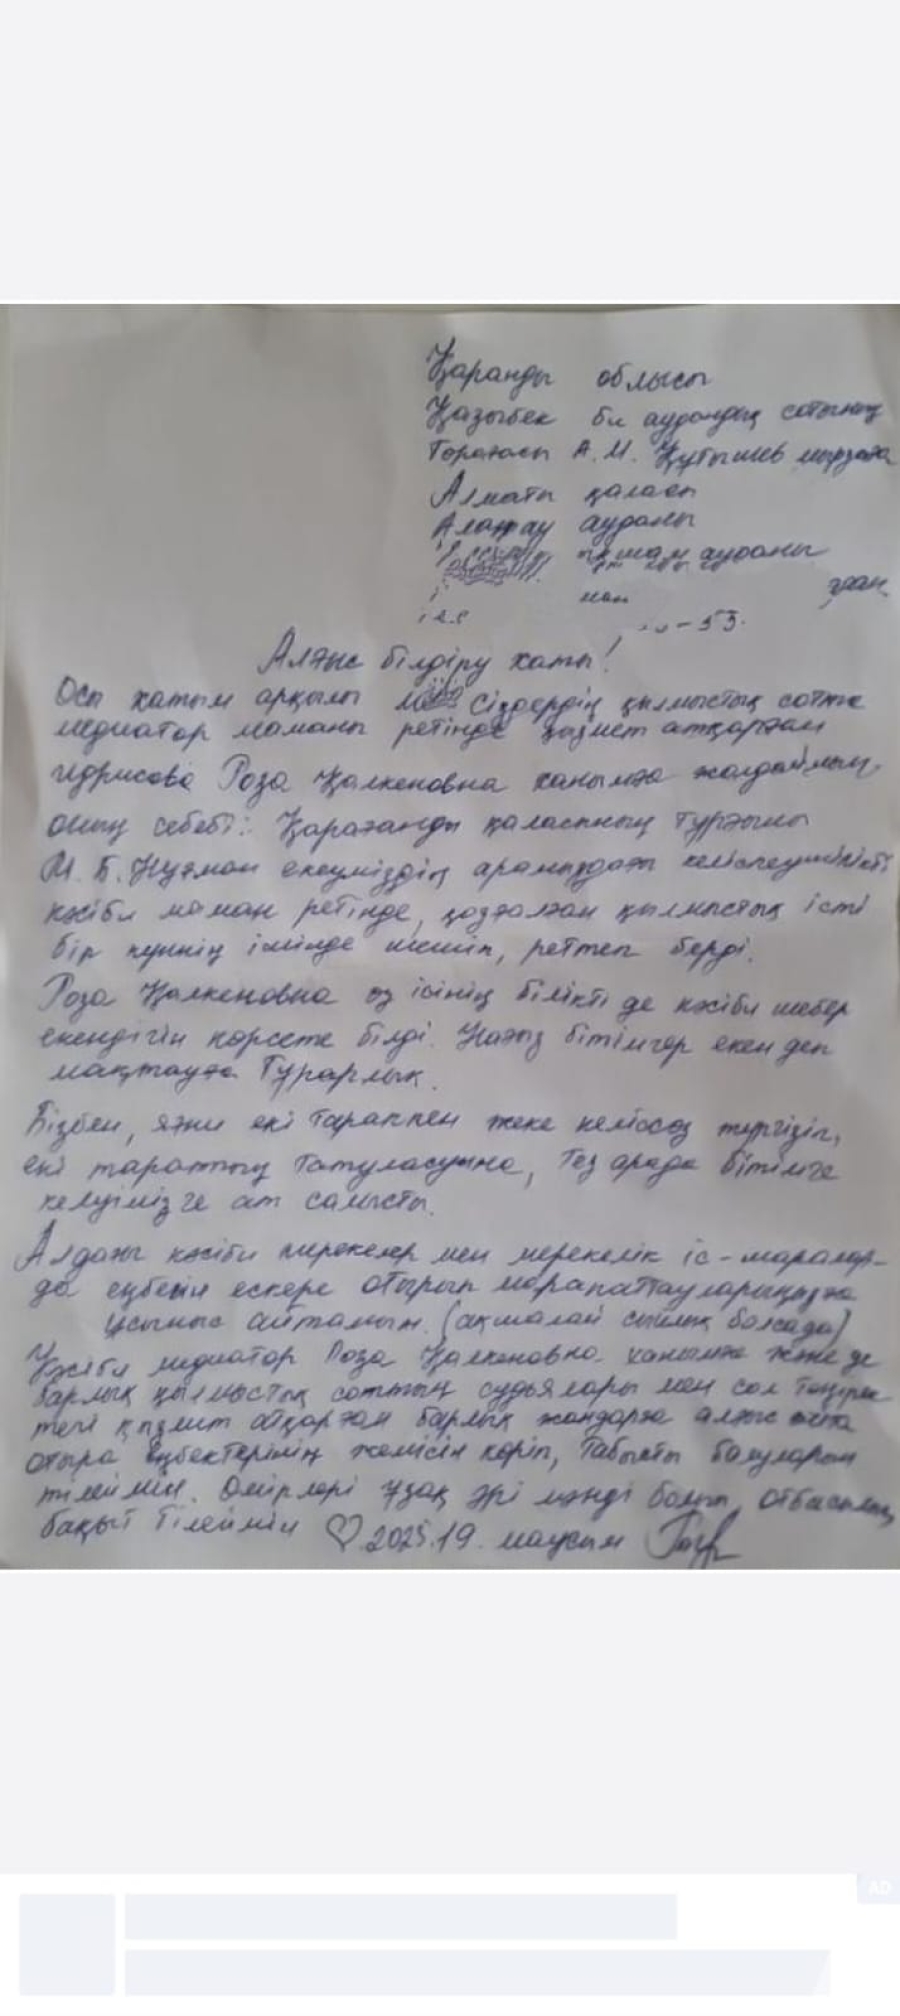 Қаранды облысы
Қазыбек би аудандық сотының
Төрағасы А.М. Құтышев мырзаға
Алматы қаласы
Алатау ауданы
ықшам ауданы
-53.
Алғыс білдіру хаты!
Осы хатым арқылы Сіздердің қылмыстық сотта
медиатор маманы ретінде қызмет атқарған
Идрисова Роза Қалкеновна ханымға жолдаймын.
оның себебі: Қарағанды қаласының тұрғыны
М.Б. Нұғман екеуміздің арамыздағы келіспеушілікті
кәсіби маман ретінде, қозғалған қылмыстық істі
бір күннің ішінде шешіп, реттеп берді.
Роза Қалкеновна өз ісінің білікті де кәсіби шебер
екендігін көрсете білді. Нағыз бітімгер екен деп
мақтауға Тұрарлық.
Бізбен, яғни екі тараппен жеке келіссөз жүргізіп,
екі тараптың татуласуына, Тез арада бітімге
келуімізге ат салысты.
Алдағы кәсіби мерекелер мен мерекелік іс-шаралар-
да еңбегін ескере отырып марапаттауларыңызға
Ұсыныс айтамын. (ақшалай сыйлық болсада)
Кәсіби медиатор Роза Қалкеновна ханымға және де
барлық қылмыстық соттың судьялары мен сол төңірек
тегі қызмет атқарған барлық жандарға алғыс айта
отыра Еңбектерінің жемісін көріп, Табысты болуларын
тілеймін. Өмірлері Ұзақ әрі мәнді болып, отбасылық
бақыт Тілеймін ♡ 2025.19. маусым